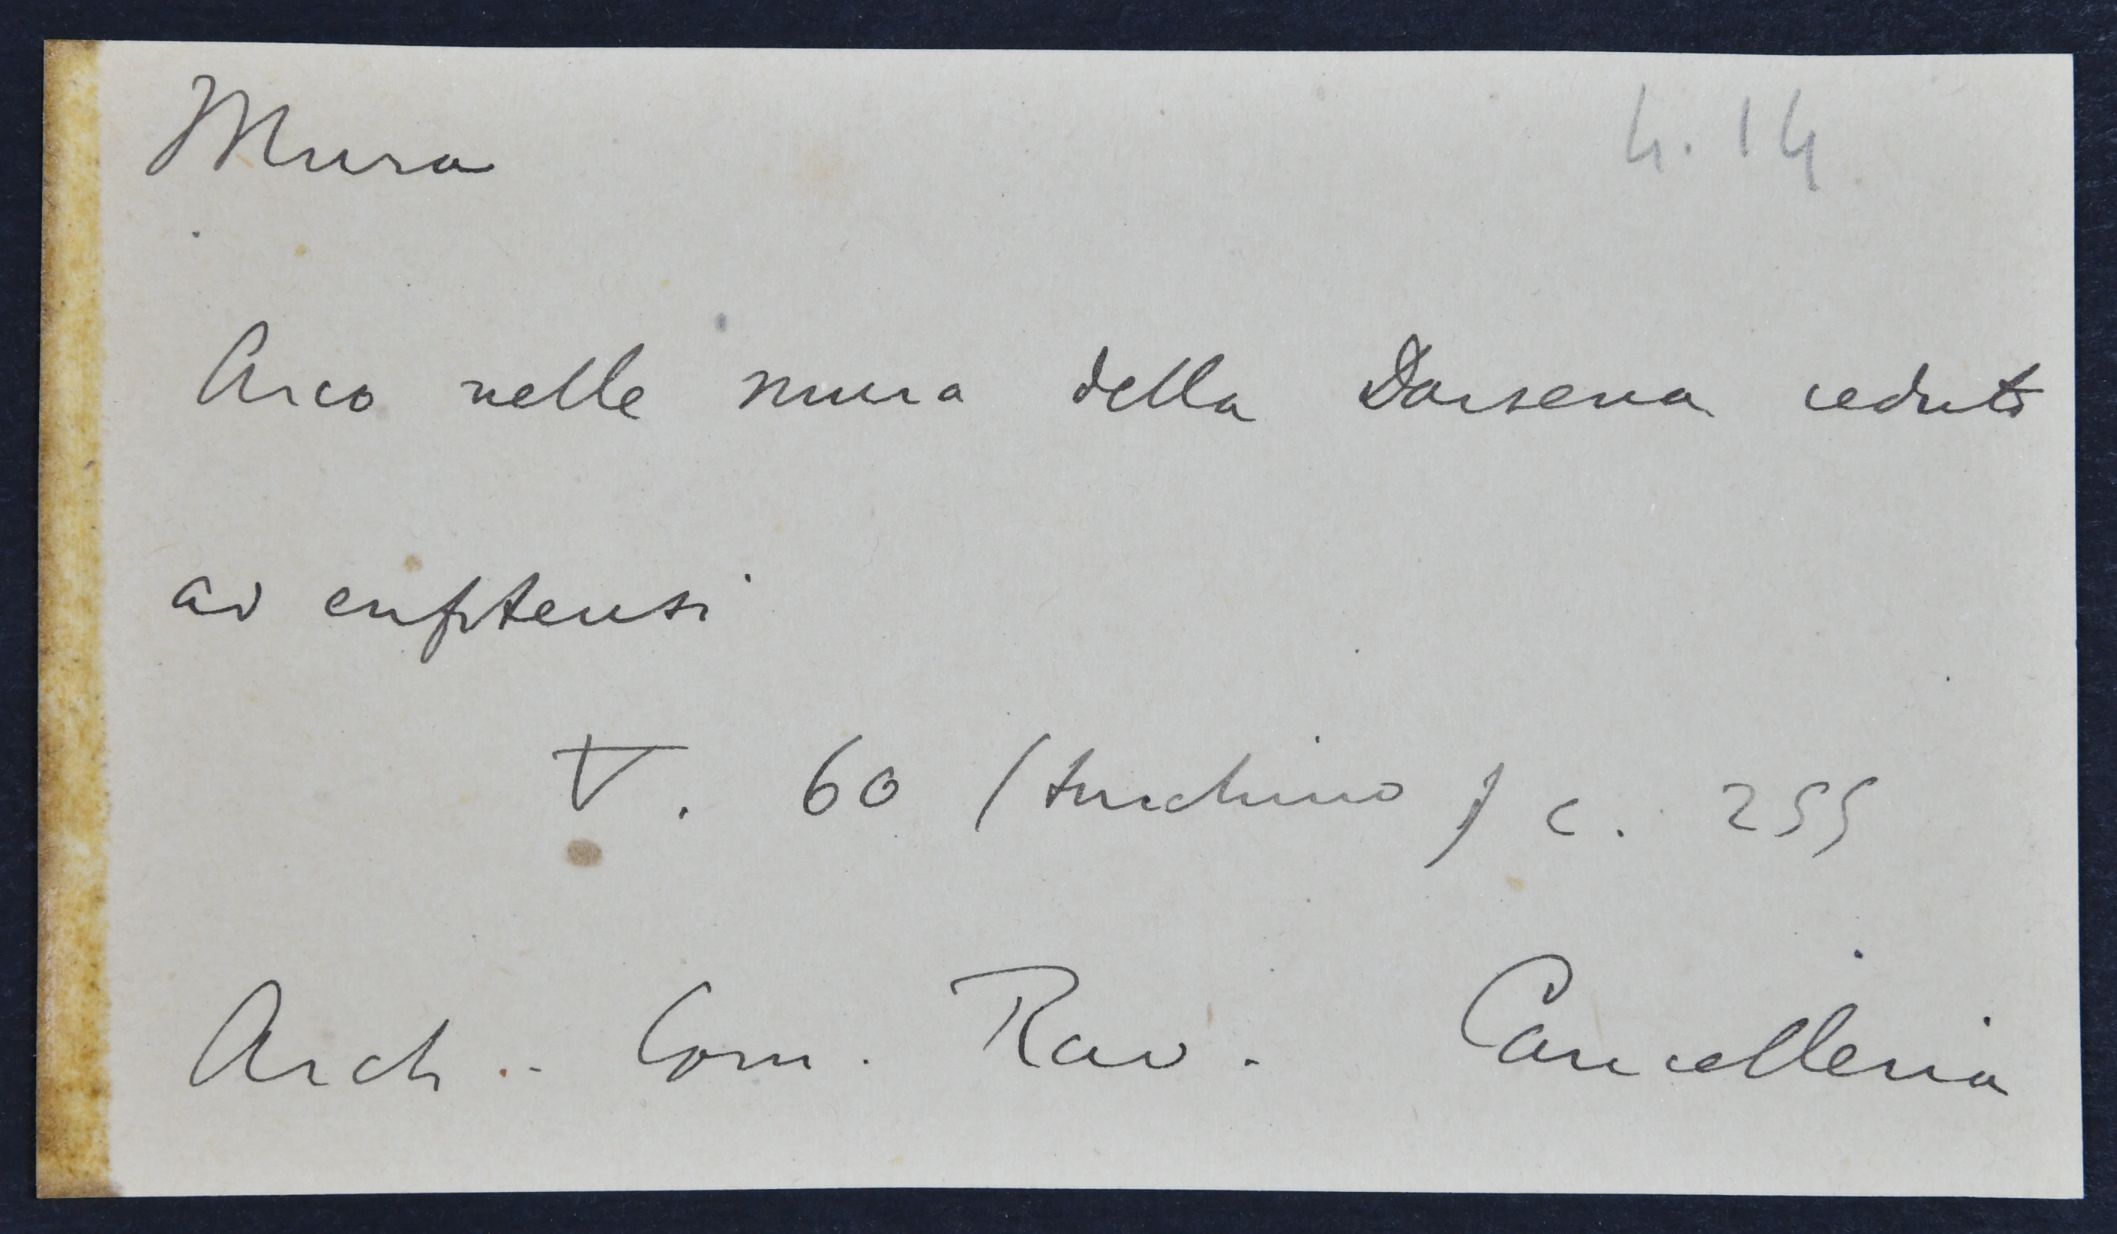 Mura
4.14
Arco nelle mura della Darsena ceduto
ad enfiteusi
V. 60 (turchino) c. 255
Arch. Com. Rav. Cancelleria